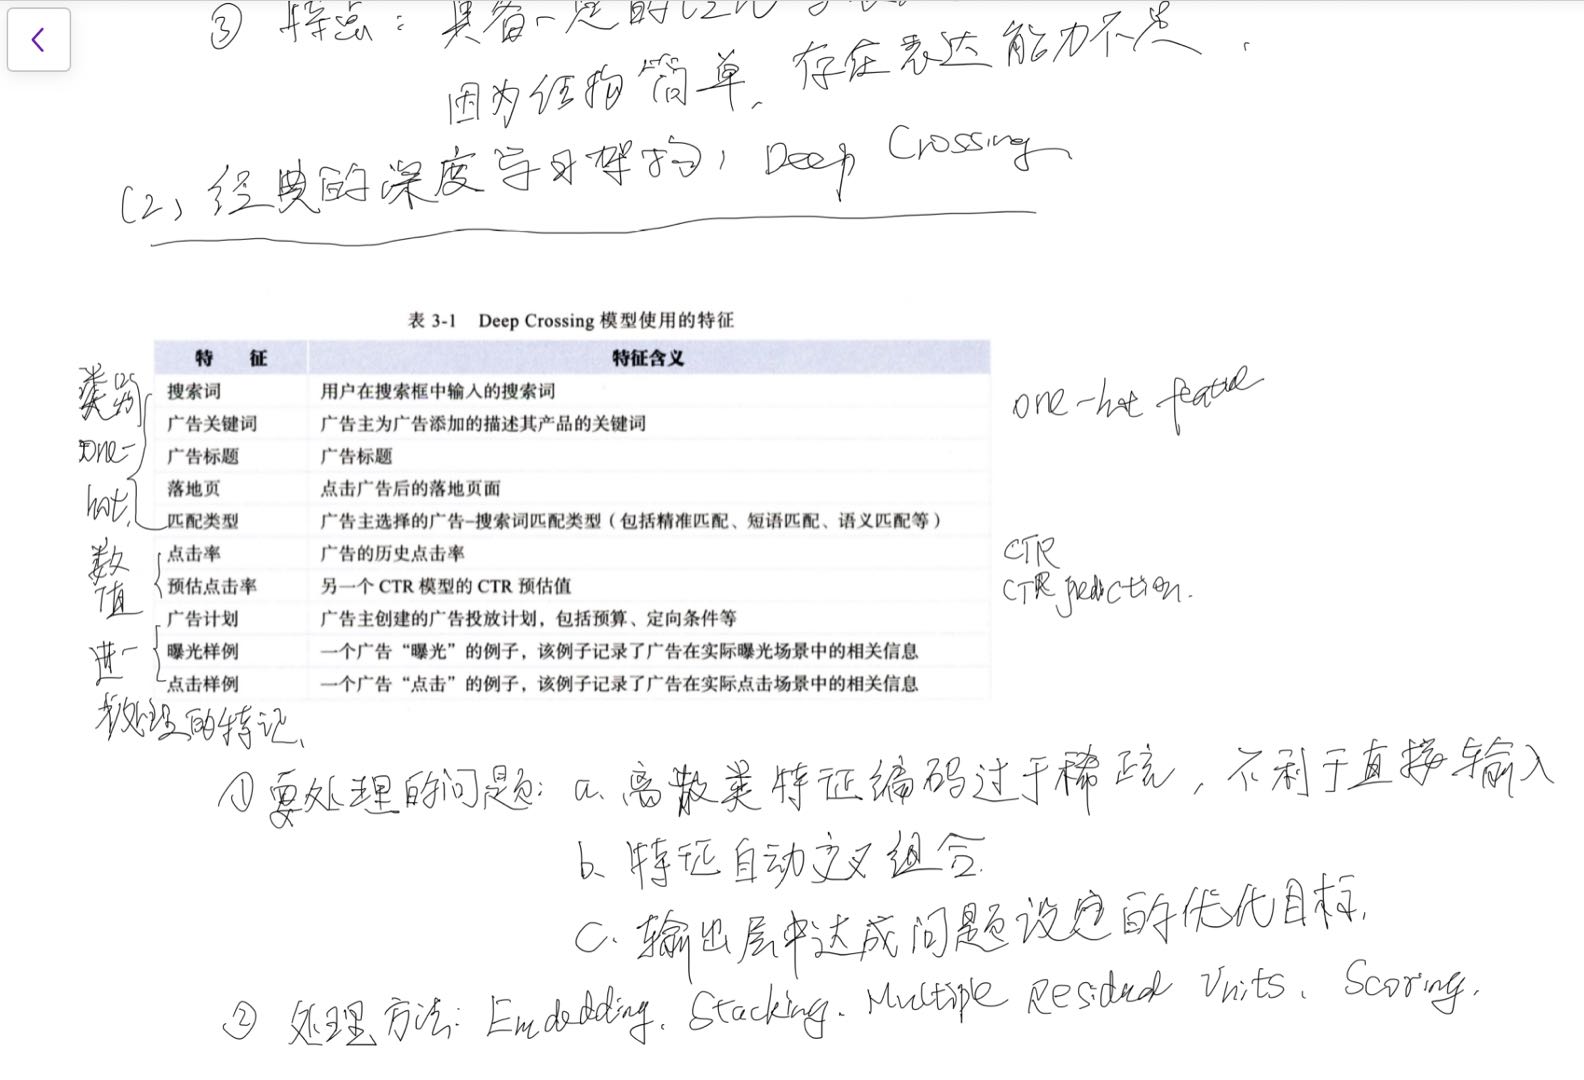 ③ 特点：具备一定的泛化
因为结构简单，存在表达能力不足．
(2) 经典的深度学习架构：Deep Crossing
表 3-1 Deep Crossing 模型使用的特征
特 征 特征含义
搜索词 用户在搜索框中输入的搜索词
广告关键词 广告主为广告添加的描述其产品的关键词
广告标题 广告标题
落地页 点击广告后的落地页面
匹配类型 广告主选择的广告–搜索词匹配类型（包括精准匹配、短语匹配、语义匹配等）
点击率 广告的历史点击率
预估点击率 另一个 CTR 模型的 CTR 预估值
广告计划 广告主创建的广告投放计划，包括预算、定向条件等
曝光样例 一个广告“曝光”的例子，该例子记录了广告在实际曝光场景中的相关信息
点击样例 一个广告“点击”的例子，该例子记录了广告在实际点击场景中的相关信息
类别
one-
hot
数
值
进一
处理的特征
one-hot feature
CTR
CTR prediction.
① 要处理的问题：a. 离散类特征编码过于稀疏，不利于直接输入
b. 特征自动交叉组合.
c. 输出层中达成问题设定的优化目标.
② 处理方法：Embedding. Stacking. Multiple Residual Units. Scoring.